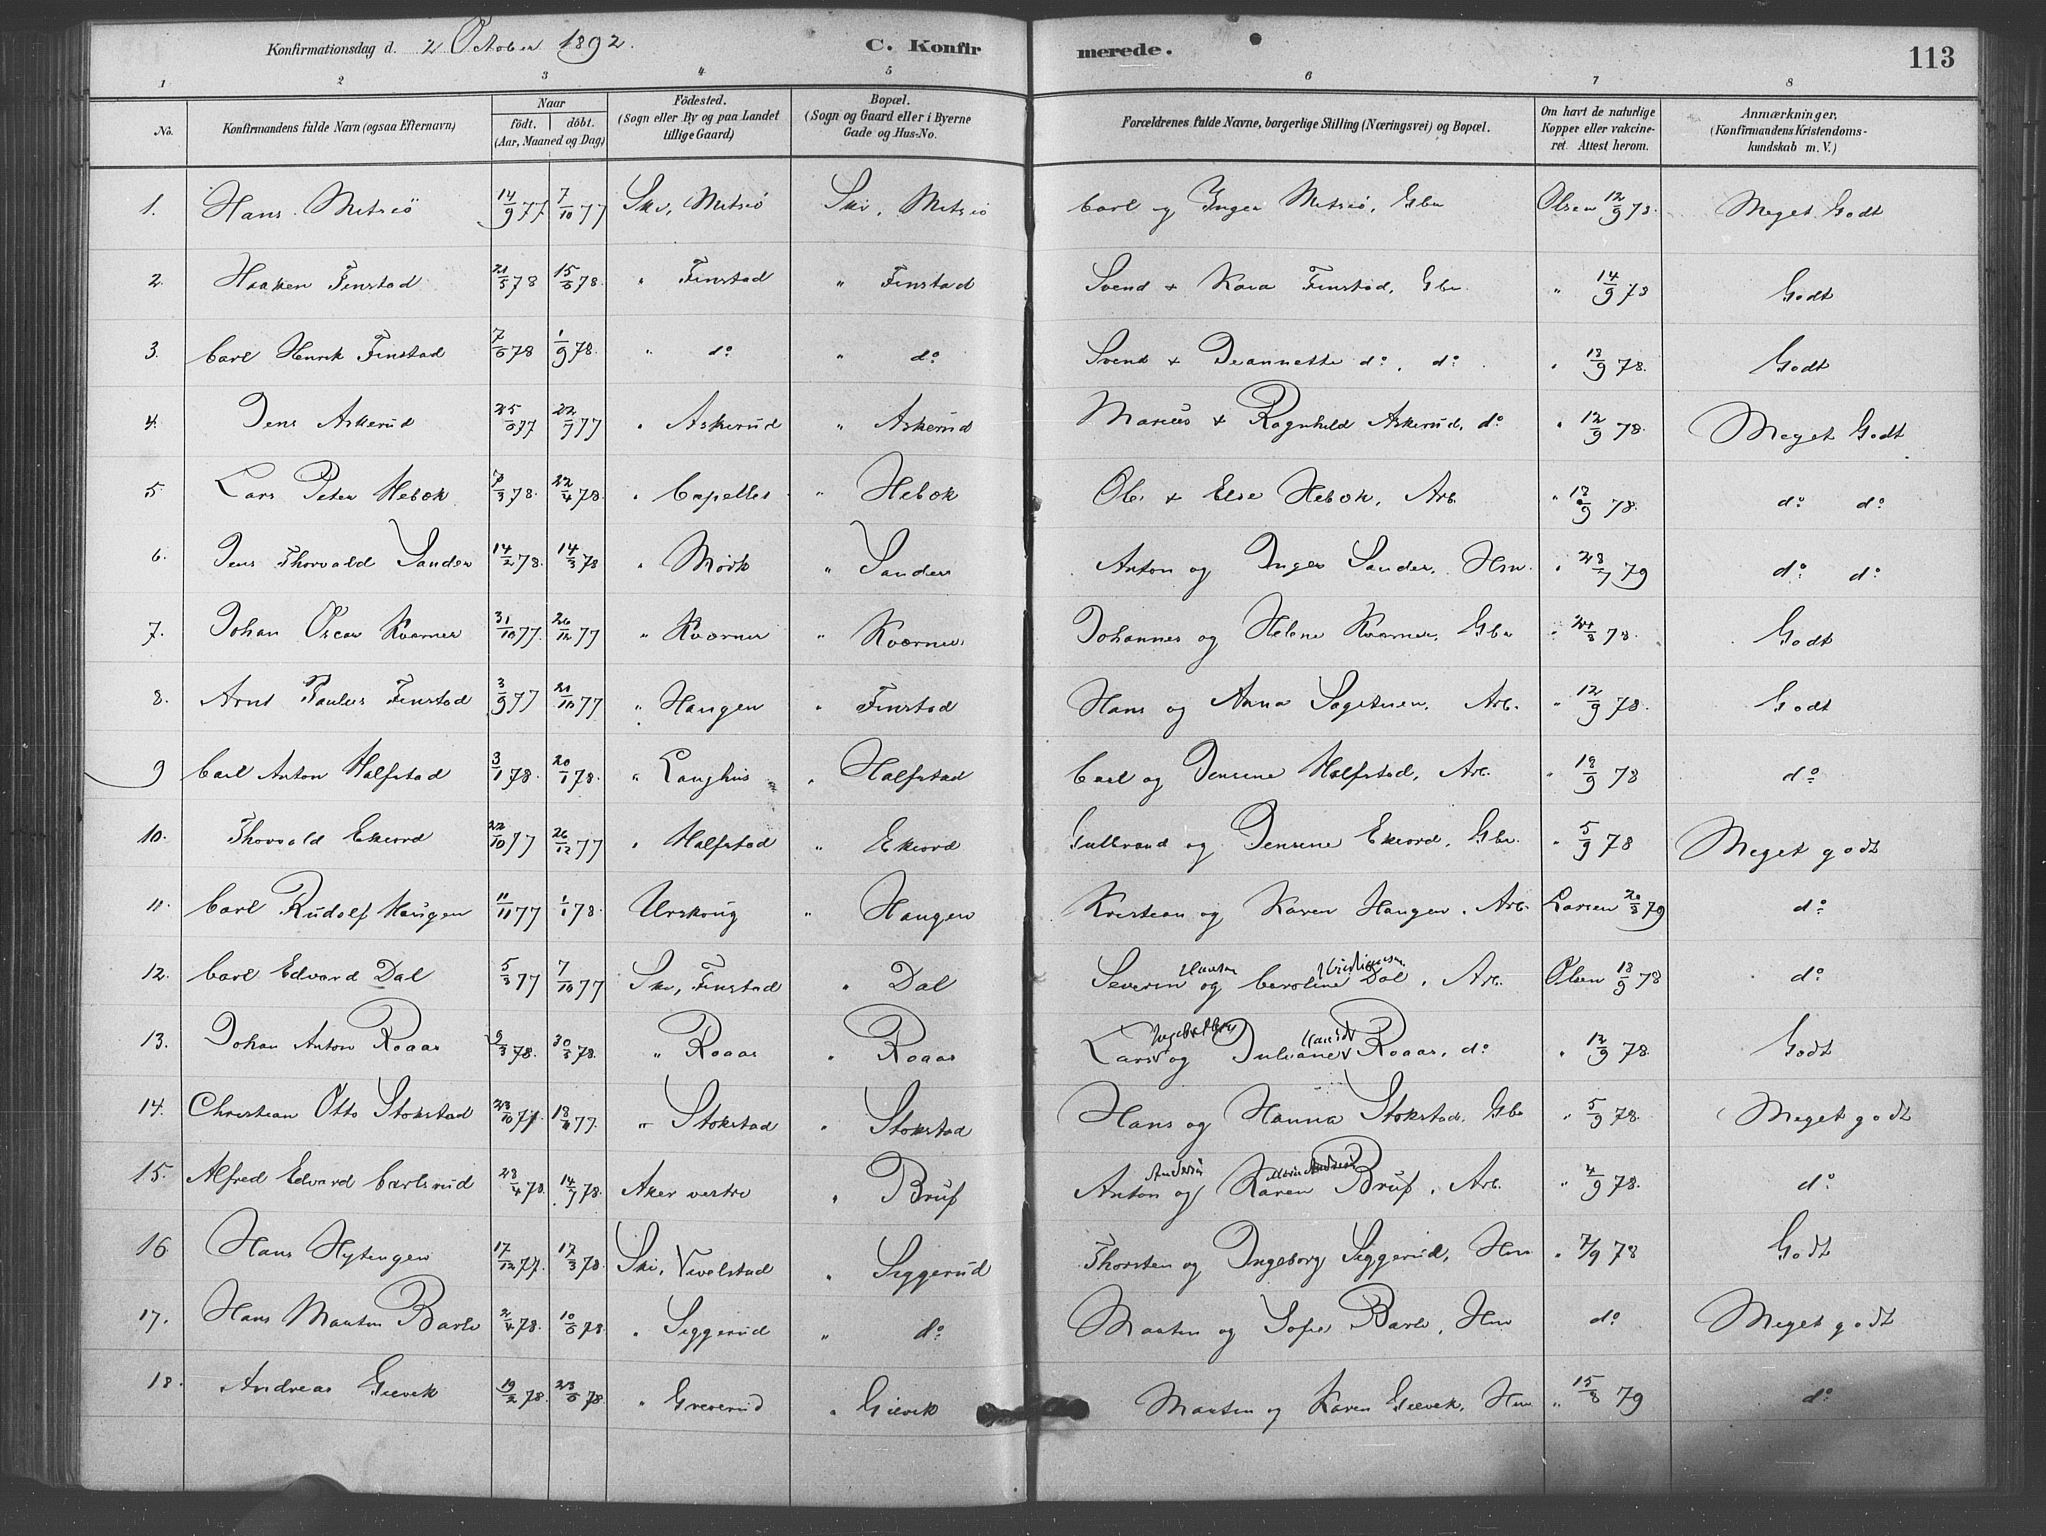 Konfirmationsdag d. 2 October 1892. C. Konfirmerede. 113
1 2 3 4 5 6 7 8
No. Konfirmandens fulde Navn (ogsaa Efternavn) Naar født. døbt. (Aar, Maaned og Dag) Fødested. (Sogn eller By og paa Landet tillige Gaard) Bopæl. (Sogn og Gaard eller i Byerne Gade og Hus-No. Forældrenes fulde Navne, borgerlige Stilling (Næringsvei) og Bopæl. Om havt de naturlige Kopper eller vakcineret. Attest herom. Anmærkninger. (Konfirmandens Kristendomskundskab m. V.)
1. Hans Metsiö 14/9 77 7/10 77 Ski, Metsiö Ski, Metsiö Carl og Inger Metsiö, Gbr Olsen 12/9 78. Meget Godt
2. Haaken Finstad 21/5 78 " Finstad " Finstad Svend + Kaia Finstad, Gbr. " 14/9 78 Godt
3. Carl Henrik Finstad 1/9 78. " do " do Svend + Jeannette do, do " 18/9 78. Godt
4. Jens Askerud 22/9 77 " Askerud " Askerud Marius + Ragnhild Askerud, do " 12/9 78. Meget Godt
5. Lars Peter Hebæk 7/3 78. 22/4 78. " Capellet " Hebæk Ole + Else Hebæk, Arb. " 18/9 78. do do
6. Jens Thorvald Sander 14/2 78. 14/3 78 " Mörk " Sander Anton og Inger Sander, Hm. " 28/7 79 do do
7. Johan Oscar Kværner 31/10 77. 26/12 77 " Kværner " Kværner Johannes og Helene Kværner, Gbr " 24/8 78. Godt
8. Arnt Paulus Finstad 3/9 77 21/10 77 " Haugen " Finstad Hans og Anna Sagstuen, Arb. " 12/9 78. Godt
9 Carl Anton Halfstad 3/1 78. 20/1 78. " Langhus " Halfstad Carl og Jensine Halfstad, Arb. " 18/9 78 do
10. Thorvald Ekeord 22/10 77 26/12 77 " Halfstad " Ekeord Gulbrand og Jensine Ekeord, Gbr. " 5/9 78 Meget godt
11. Carl Rudolf Haugen 11/11 77 1/1 78. Urskoug " Haugen Kristian og Karen Haugen, Arb. Larsen 20/8 79 do
12. Carl Edvard Dal 77 7/10 77 Ski, Finstad " Dal Severin Hansen og Caroline Kristiansen Dal, Arb. Olsen 18/9 78 do
13. Johan Anton Roaas 9/3 78. 30/3 78. " Roaas " Roaas Lars og Juliane Hansd Roaas, do " 12/9 78. Godt
14. Christian Otto Stokstad 28/10 77 18/11 77. " Stokstad " Stokstad Hans og Hanna Stokstad, Gbr " 5/9 78. Meget godt
15. Alfred Edvard Carlsrud 28/4 78. 14/7 78. Aker vestre " Bruf Anton Andersen og Karen Bruf, Arb. " 78. do
16 Hans Hytengen 17/12 77. 17/3 78. Ski, Vevelstad " Siggerud Thorsten og Ingeborg Siggerud, Hm " 7/9 78 Godt
17. Hans Martin Barli 2/4 78. 78. " Siggerud " do Martin og Sofie Barli, Hm do Meget godt
18. Andreas Gievik 19/2 78. 78. " Greverud " Gievik Martin og Karen Gievik, Hm " 15/8 79 do